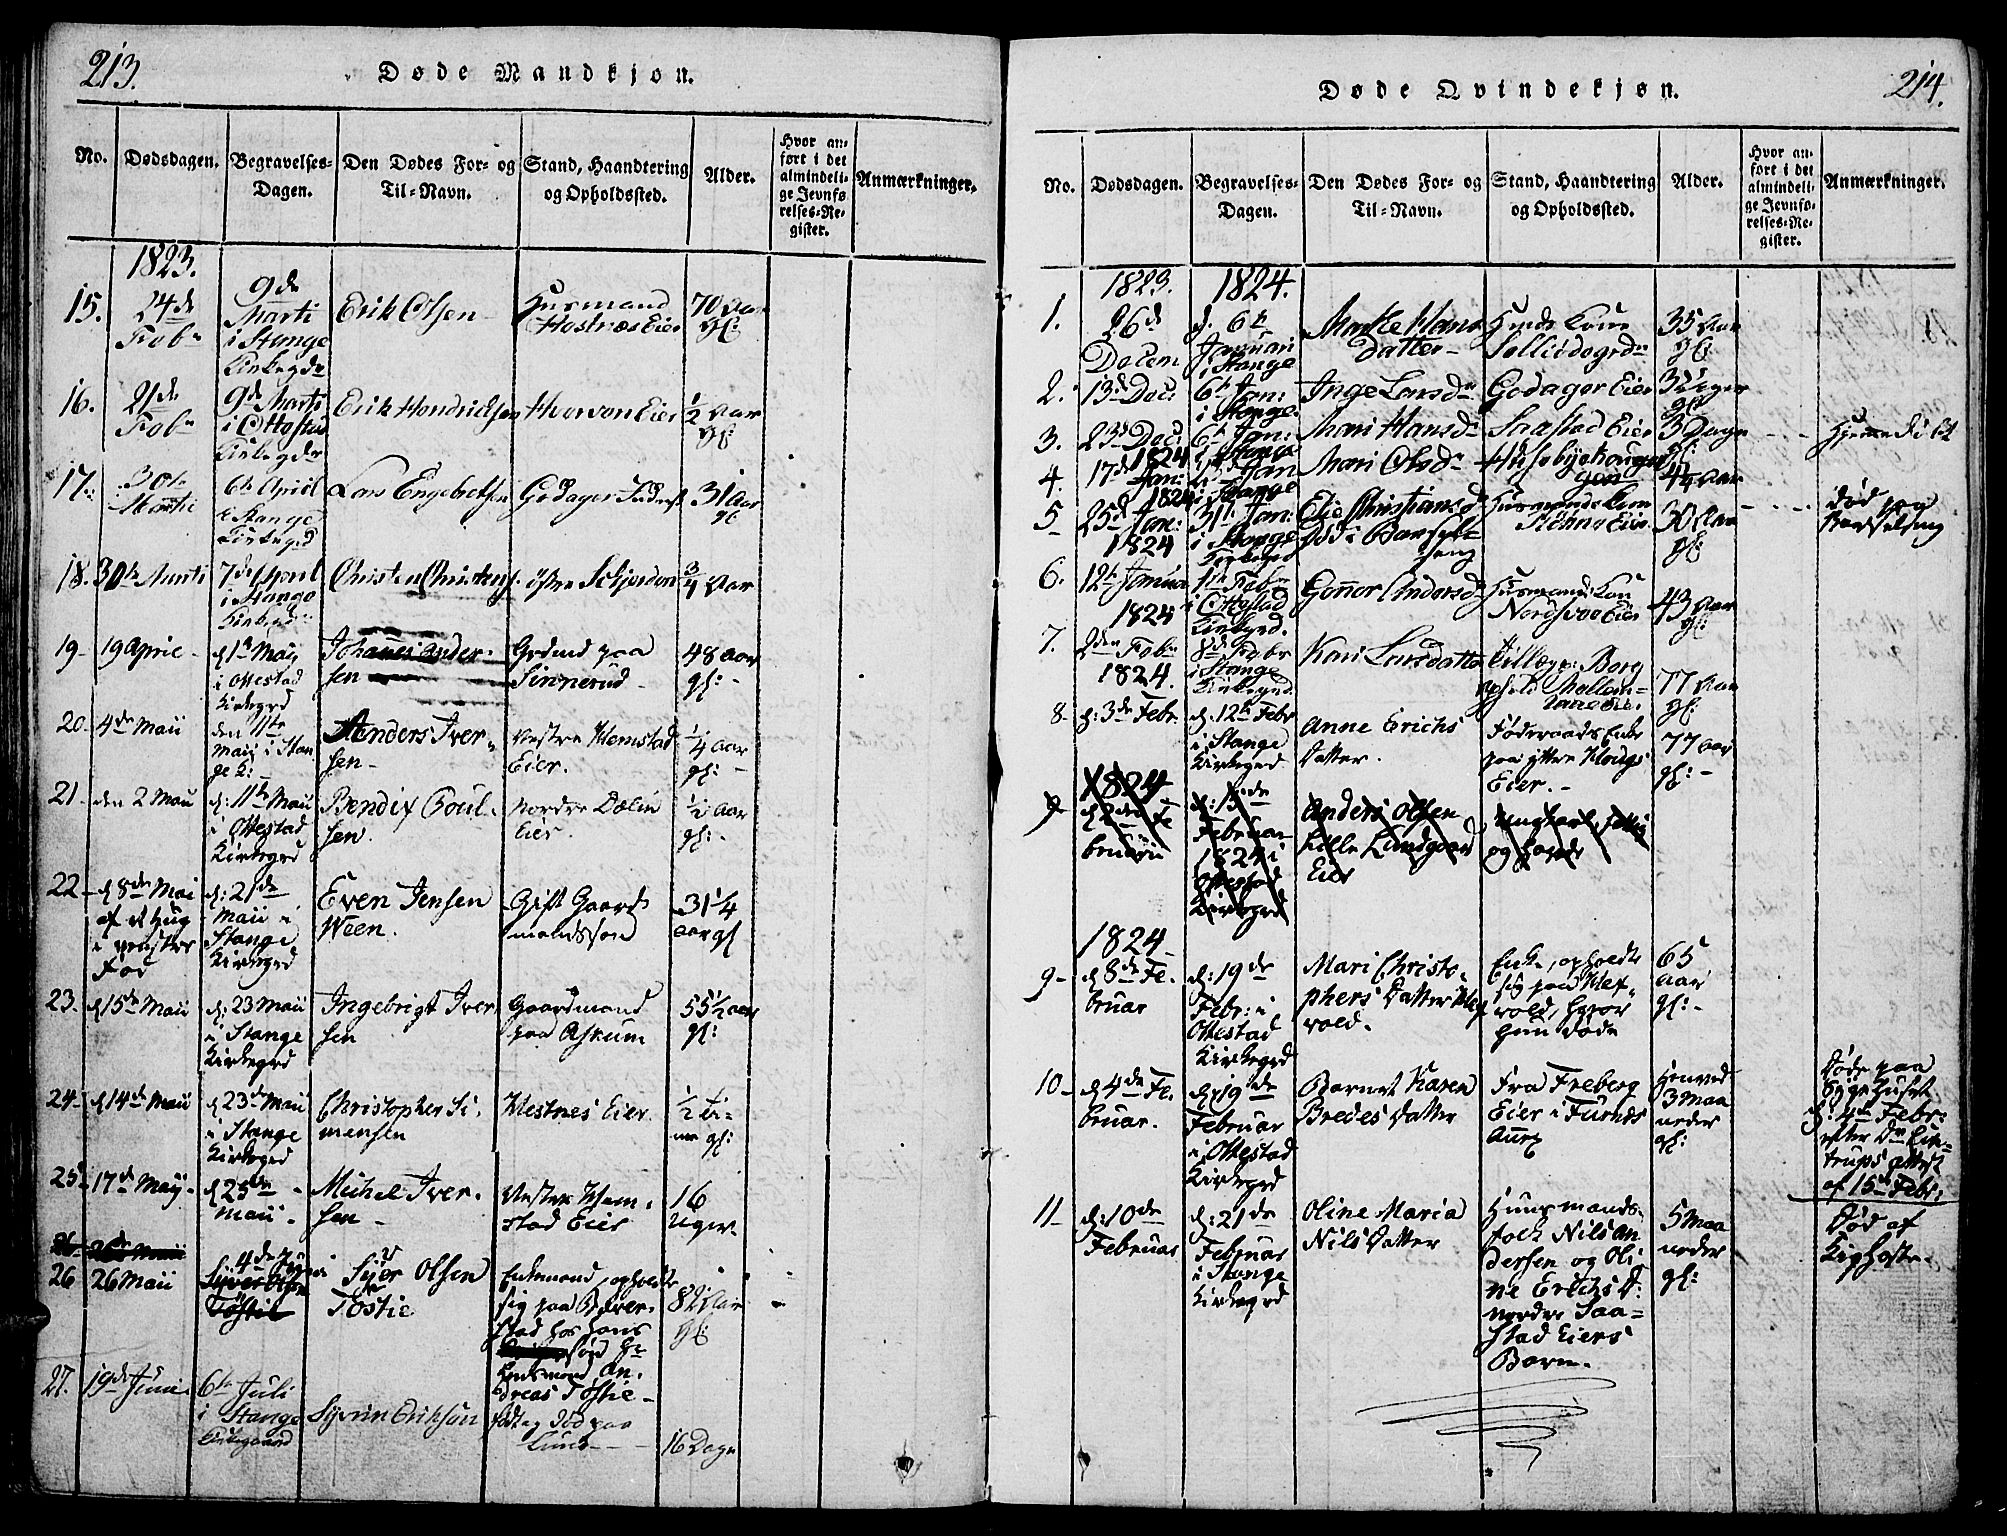 213.
Døde Mandkjøn.
No.
Dødsdagen.
Begravelses-
Dagen.
Den Dødes For- og
Til-Navn.
Stand, Haandtering
og Opholdssted.
Alder.
Hvor an-
ført i det
almindeli-
ge Jevnfø-
relses-Re-
gister.
Anmærkninger.
1823.
15.
24de
Febr
9de
Marti
i Stange
Kirkegde
Erik Olsen
Husmand
Hostnæs Eier
70 Aar
gl:
16.
21de
Febr
9de Marts
i Ottestad
Kirkegde
Erik Hendrichsen
Eier
½ Aar
gl:
17.
30te
Martii
6te April
i Stange
Kirkegrd
Lars Engebretsen
Godager
31 Aar
gl
18.
30te Marti
7de April
i Stange
Kirkegrd
Christen Christens.
østre Skjerden
¾ Aar
19-
19 April-
d 1te May
i Ottestad
Kirkegrd
Johannes Ander-
sen
Grdmd paa
Sinnerud-
48 Aar
gl:-
20.
4de Maii
den 11te
Maii i Stan
ge K:-
Anders Iver-
sen-
Vestre Hemstad
Eier.
¼ Aar
gl:-
21.
den 2 Maii
d: 11te Maii
i Ottestad
Kirkegrd
Bendix Poul-
sen.
nordre Dælin
Eier.
½ Aar
gl:-
22-
d 8de Mai
af et Hug
i venstre
Fod
d: 21de
Maii i
Stange
Kirkegrd
Even Jensen
Ween.
Gift Gaard-
mandssøn
31 ¼
aar gl
23.
d 15de Maii
d: 23 Maii
i Stange
Kirkegrd
Ingebrigt Iver
sen
Gaardmand
paa Askum
55½ aar
gl:
24-
d 14de Maii
d 23de Maii
i Stange
Kirkegrd
Christopher Si-
mensen
Westnes Eier
½ Ti-
me gl:
25-
17de May-
d 25de
Maii-
Michel Iver-
sen-
Vestre Hem-
stad Eier
16
Uger-
26
26 Maii
4de Juni
Syver Olsen
Tostie
Syver Olsen
Tostie
Enkemand, opholdte
sig paa
stad hos hans
søn
Husmand An-
dreas Tostie-
82 Aar
gl:
27.
19de Juni
6te Juli
i Stange
Kirkegaard
Syvrin Eriksøn
født og død paa
16 Dage
214.
Døde Qvindekjøn.
No.
Dødsdagen.
Begravelses-
Dagen.
Den Dødes For- og
Til-Navn.
Stand, Haandtering
og Opholdssted.
Alder.
Hvor an-
ført i det
almindeli-
ge Jevnfø-
relses-Re-
gister.
Anmærkninger.
1823.
1824.
1.
26de
Decem
d. 6te
Januari
i Stange
Marte Hans
Datter-
Kone
35 Aar
gl:
2.
13de Dec:
6te Jan:
i Stange
Inge Larsdr
Godager Eier
3 Uger
gl:
3.
23de Dec:
6te Jan:
Stange
Mari Hansdr
Saastad Eier
3 Dage
Hjemmedöbt
4.
1824
17de
Jan:
Jan
i Stange
Mari Olsdr
44 Aar
5-
1824
25de Jan:
31te Jan:
i Stange
Kirkegrd
Elie Christiansd
død i Barsel-
seng
Husmands Kone
Eier
30 Aar
gl:
Død paa
Barselseng
6.
1824
12te Januar
1te Febr
i Ottestad
Kirkegrd.
Gonnor Andersd
Husmands Kone
Nordsvee Eier
43 Aar
gl:
7.
1824
2den Febr
8de Febr
i Stange
Kirkegrd
Kari Larsdatter
77 Aar
gl:
8-
1824.
d: 3de Febr.
d: 12te Febr
i Stange
Kirkegrd
Anne Erichs
Datter.
Føderaads Enke
paa ytre
Eier.-
77 Aar
gl:-
9-
1824
d 2de Fe
bruarii
d: 15de
Februar
1824 i
Ottestad
Kirkegrd
Anders Olsen
Lille Lundgaard
Eier
Ungkarl
9-
1824
d 8de Fe-
bruar
d: 19de
Febr: i
Ottestad
Kirkegrd
Mari Christo-
phers Datter Klæp
vold.
Enke, opholdte
sig paa Klæp-
vold, hvor
hun døde
65
Aar
gl:-
10-
d 4de Fe-
bruar.
d: 19de
Februar
i Ottestad
Kirkegrd
Barnet Karen
Bredes Datter
Fra Freberg
Eier i Furnes
Anex
Henved
3 Maa
neder
gl:
Døde paa
Sygehuset
d: 4de Febr:
efter Dr
trups attest
af 15de Febr:
11-
d: 10de
Februar
d: 21de
Februar
i Stange
Kirkegrd
Oline Maria
Nils Datter
Huusmands-
folk Nils An
dersen og Oli
ne Erichs D:
nordre Saa-
stad Eiers
Barn.
5 Maa
neder
gl:
Død af
Kighoste-